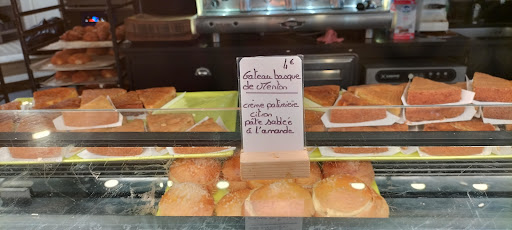 4€
Gateau basque
de Menton
crème patissière
citron
pâte sablée
à l'amande